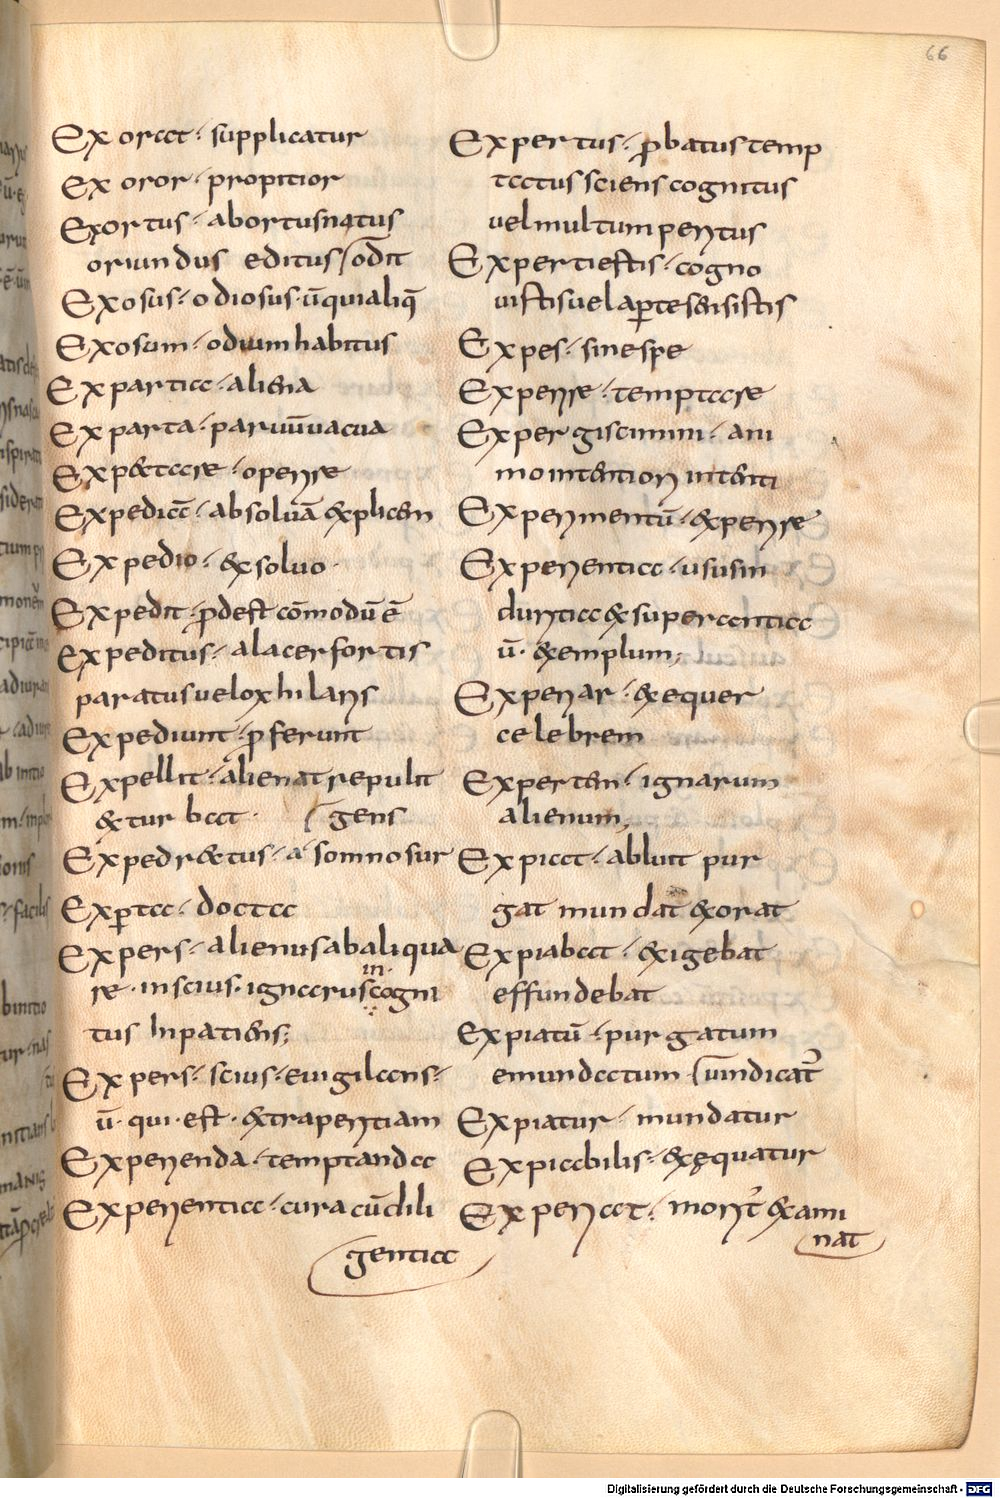 66
Exorat · supplicatur
Exoror · propitior
Exortus · abortus natus
oriundus editus (odit
Exosus · odiosus · ū qui aliq̄
Exosum · odium habitus
Expartia · aliena
Exparta · paruū uacua
Expetare · operire
Expediā · absoluā explicem
Expedio · exsoluo ·
Expedit · ꝓdest cōmodū ē
Expeditus · alacer fortis
paratus uelox hilaris
Expediunt · ꝓferunt
Expellit · alienat repulit
& turbat · (gens
Expedr&us · a somno sur
Exꝑta · docta
Expers · alienus ab aliqua
re · inscius · ignarus cogni
in
tus l inpatiens;
Expers · scius · euigilans ·
ū · qui · est · extra peritiam
Experienda · temptanda
Experientia · cura cū dili
gentia
Expertus · ꝓbatus temp
tatus sciens cognitus
uel multum peritus
Experti estis · cogno
uistis uel aꝑte sensistis
Expes · sine spe
Experire · temptare
Expergiscimini · ani
mo intentiori intenti
Experimentū · experire
Experientia · usus in
duritia & superantia
ū · exemplum;
Experiar · exequer
celebrem
Expertem · ignarum
alienum;
Expiat · abluit pur
gat mundat exorat
Expiabat · exigebat
effundebat
Expiatū · purgatum
emundatum (uindicat̄
Expiatur · mundatur
Expiabilis · exęquatur
Experiat · morit̄ exami
nat
Digitalisierung gefördert durch die Deutsche Forschungsgemeinschaft - DFG